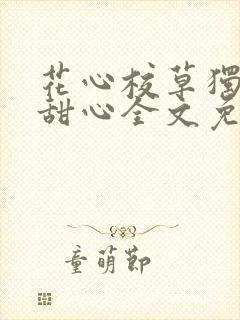 花心校草獨
甜心全文免
童萌節